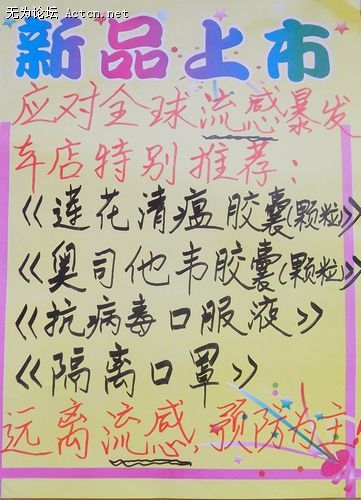 无为论坛 Actcn.net
新品上市
应对全球流感暴发
车店特别推荐:
《莲花清瘟胶囊(颗粒)》
《奥司他韦胶囊(颗粒)》
《抗病毒口服液》
《隔离口罩》
远离流感、预防为主